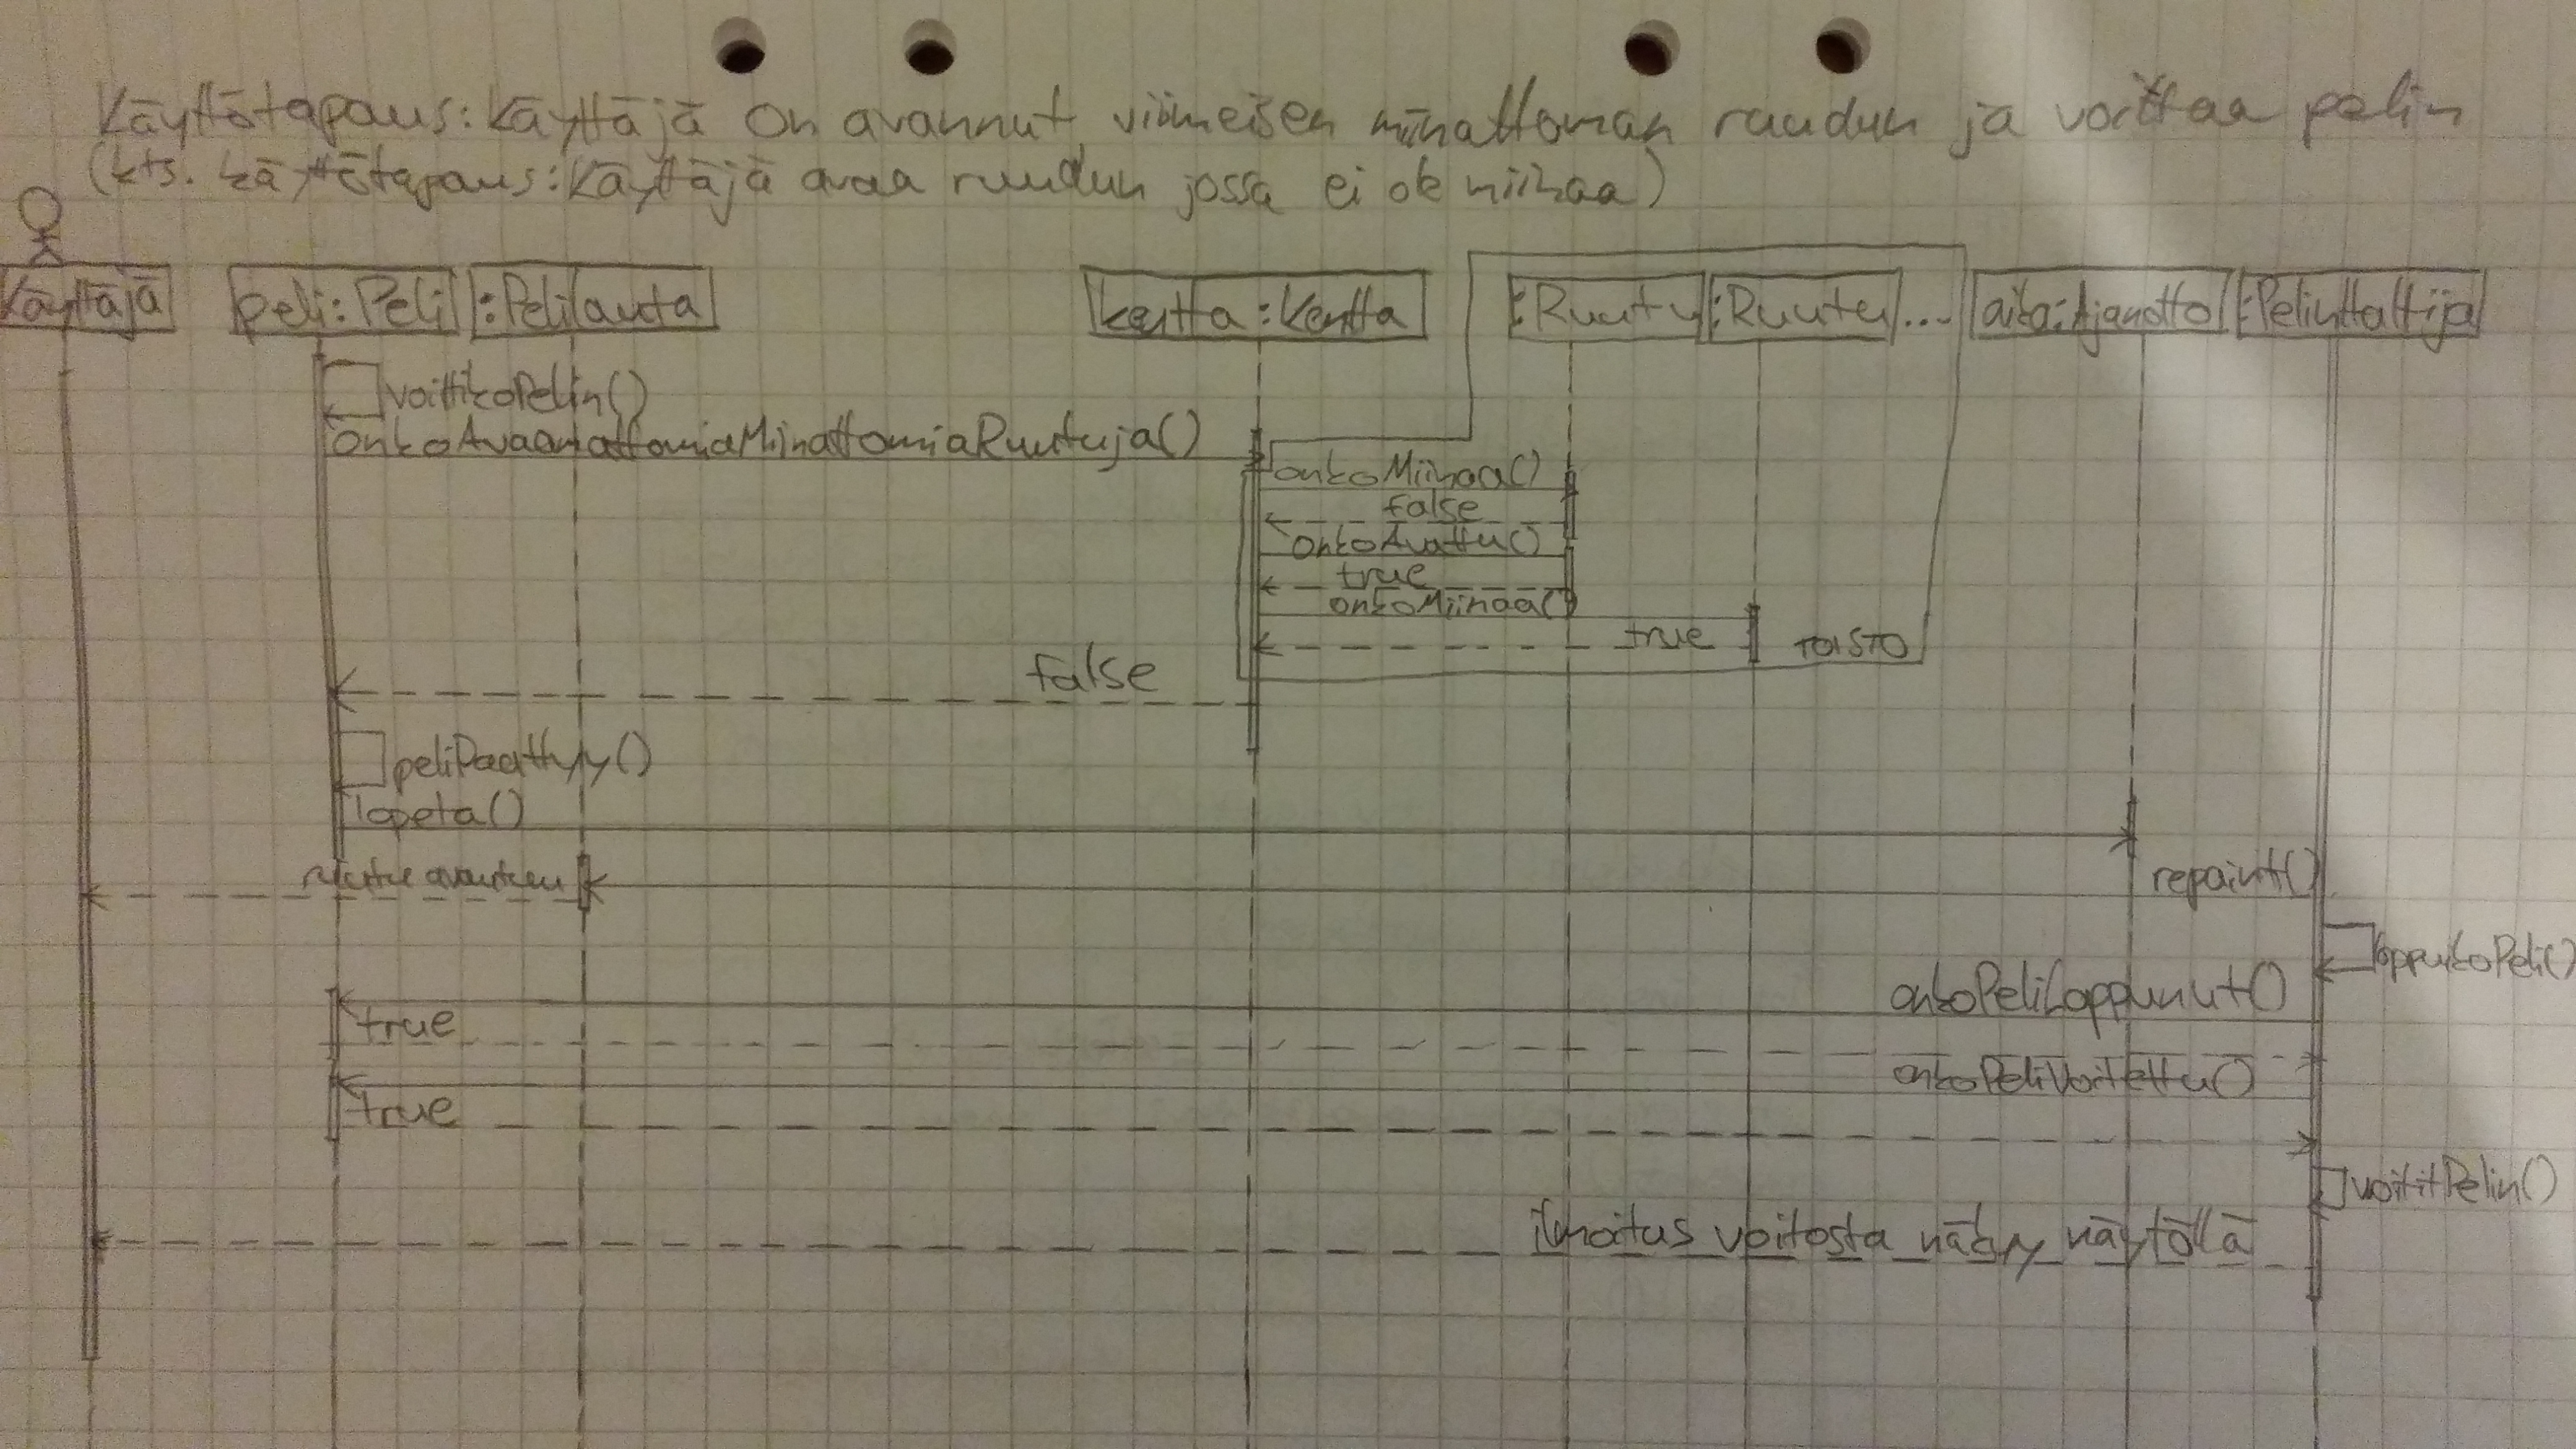 Käyttötapaus: Käyttäjä on avannut viimeisen miinattoman ruudun ja voittaa pelin
(kts. käyttötapaus: Käyttäjä avaa ruudun jossa ei ole miinaa)
Käyttäjä peli:Peli :Pelilauta kentta:Kentta :Ruutu :Ruutu ... aika:Ajanotto
voittikoPelin()
onkoAvaamattomiaMiinattomiaRuutuja()
onkoMiinaa()
false
onkoAvattu()
true
onkoMiinaa()
true TOISTO
false
peliPaattyy()
lopeta()
repaint()
loppuikoPeli()
onkoPeliLoppunut()
true
onkoPeliVoitettu()
true
voititPelin()
ilmoitus voitosta näkyy näytöllä